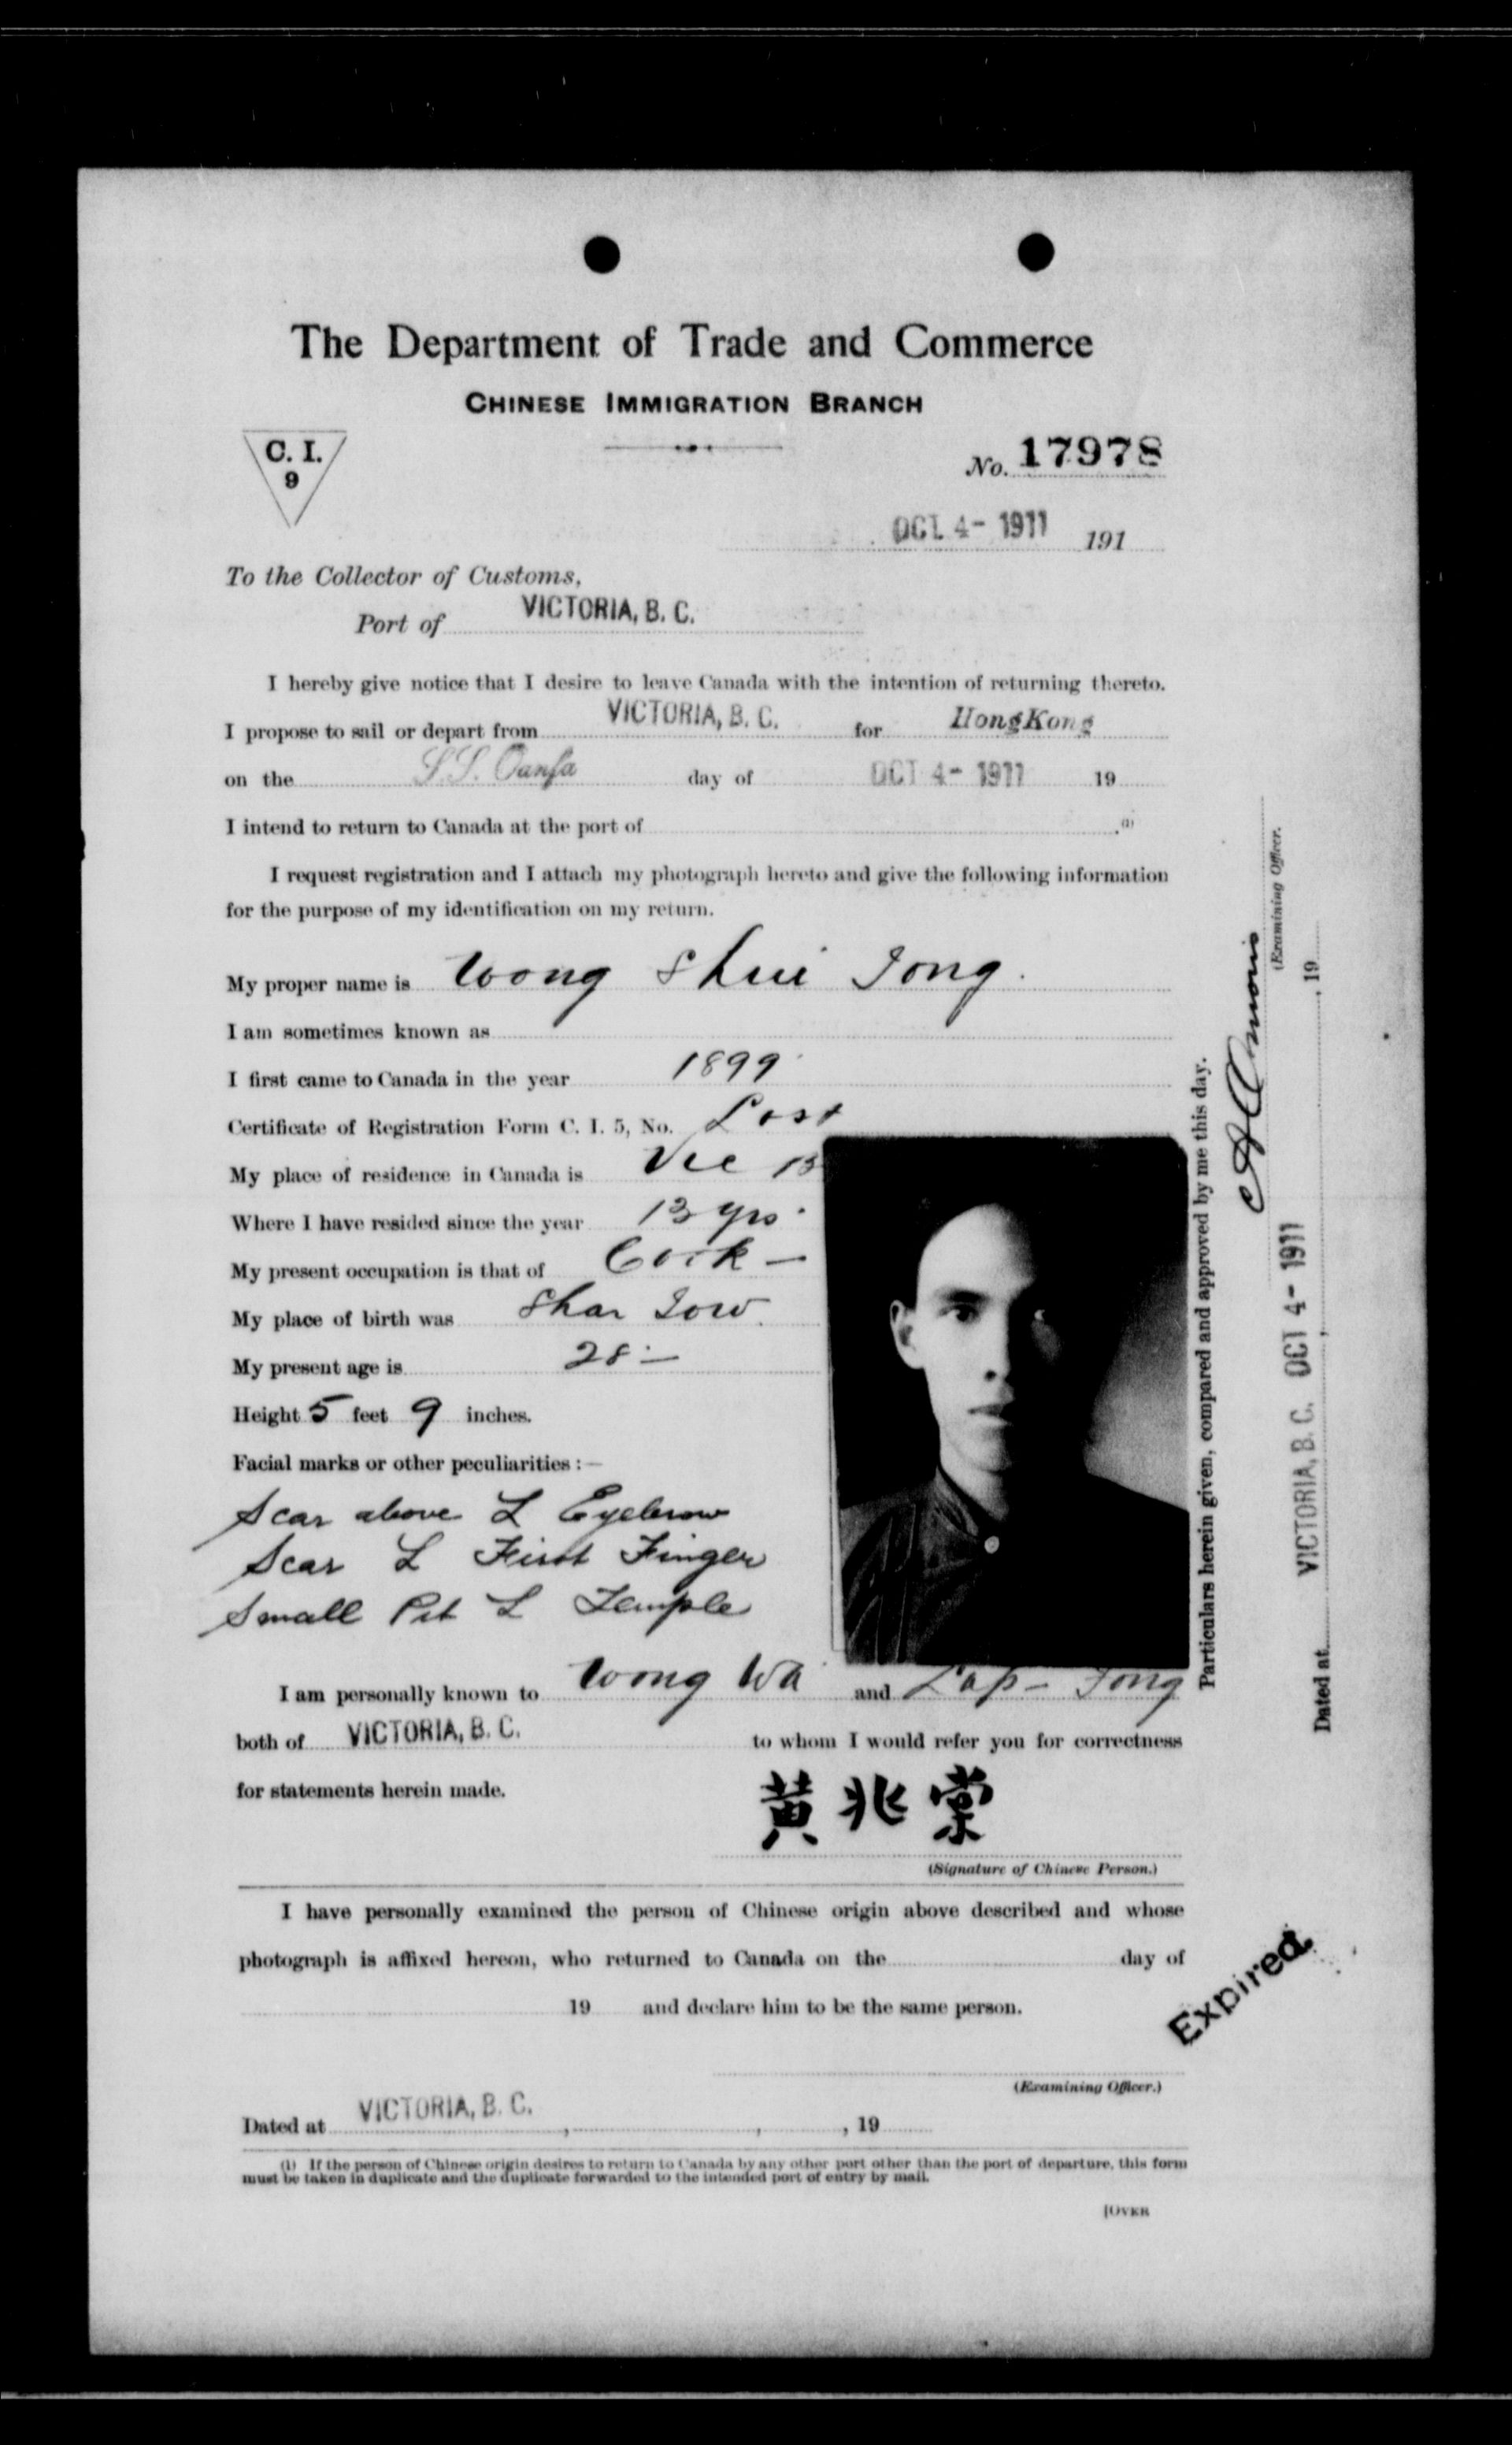 The Department of Trade and Commerce
CHINESE IMMIGRATION BRANCH
C. I.
9
No. 17978
OCT 4- 1911 191
To the Collector of Customs,
Port of VICTORIA, B. C.
I hereby give notice that I desire to leave Canada with the intention of returning thereto.
I propose to sail or depart from VICTORIA, B. C. for HongKong
on the S.S. Oanfa day of OCT 4- 1911 19
I intend to return to Canada at the port of .(1)
I request registration and I attach my photograph hereto and give the following information
for the purpose of my identification on my return.
My proper name is Wong Shui Tong.
I am sometimes known as
I first came to Canada in the year 1899
Certificate of Registration Form C. I. 5, No. Lost
My place of residence in Canada is Vic B
Where I have resided since the year 13 yrs.
My present occupation is that of Cook -
My place of birth was Shar Tow.
My present age is 28 -
Height 5 feet 9 inches.
Facial marks or other peculiarities :—
Scar above L Eyebrow
Scar L First Finger
Small Pit L Temple
I am personally known to Wong Wa and Lap - Tong
both of VICTORIA, B. C. to whom I would refer you for correctness
for statements herein made.
黄兆棠
(Signature of Chinese Person.)
I have personally examined the person of Chinese origin above described and whose
photograph is affixed hereon, who returned to Canada on the day of
19 and declare him to be the same person.
(Examining Officer.)
Dated at VICTORIA, B. C. , , , 19
(1) If the person of Chinese origin desires to return to Canada by any other port other than the port of departure, this form
must be taken in duplicate and the duplicate forwarded to the intended port of entry by mail.
[OVER
Particulars herein given, compared and approved by me this day.
(Examining Officer.
Dated at VICTORIA, B. C. OCT 4- 1911 , 19
Expired